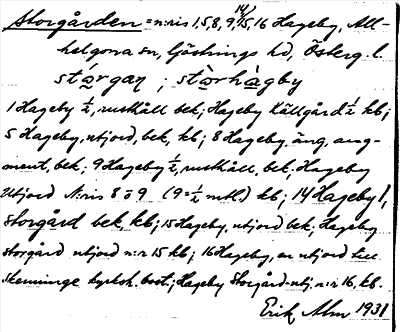 Storgården = n:ris 1, 5, 8, 9, 14/, 15, 16 Hageby, All-
helgona sn, Göstrings hd, Österg. l.
stórgan ; stòrhàgby
1 Hageby ½, rusthåll bek; Hageby Källgård ½ kb;
5 Hageby, utjord, bek, kb; 8 Hageby, äng, aug-
ment, bek; 9 Hageby ½, rusthåll, bek, Hageby
Utjord N:ris 8 o 9 (9=½ mtl) kb; 14 Hageby 1,
Storgård bek, kb; 15 Hageby, utjord bek, Hageby
storgård utjord n:r 15 kb; 16 Hageby, en utjord till
Skenninge kyrkoh. bost.; Hageby Storgård-utj. n:r 16, kb.
Erik Alm 1931